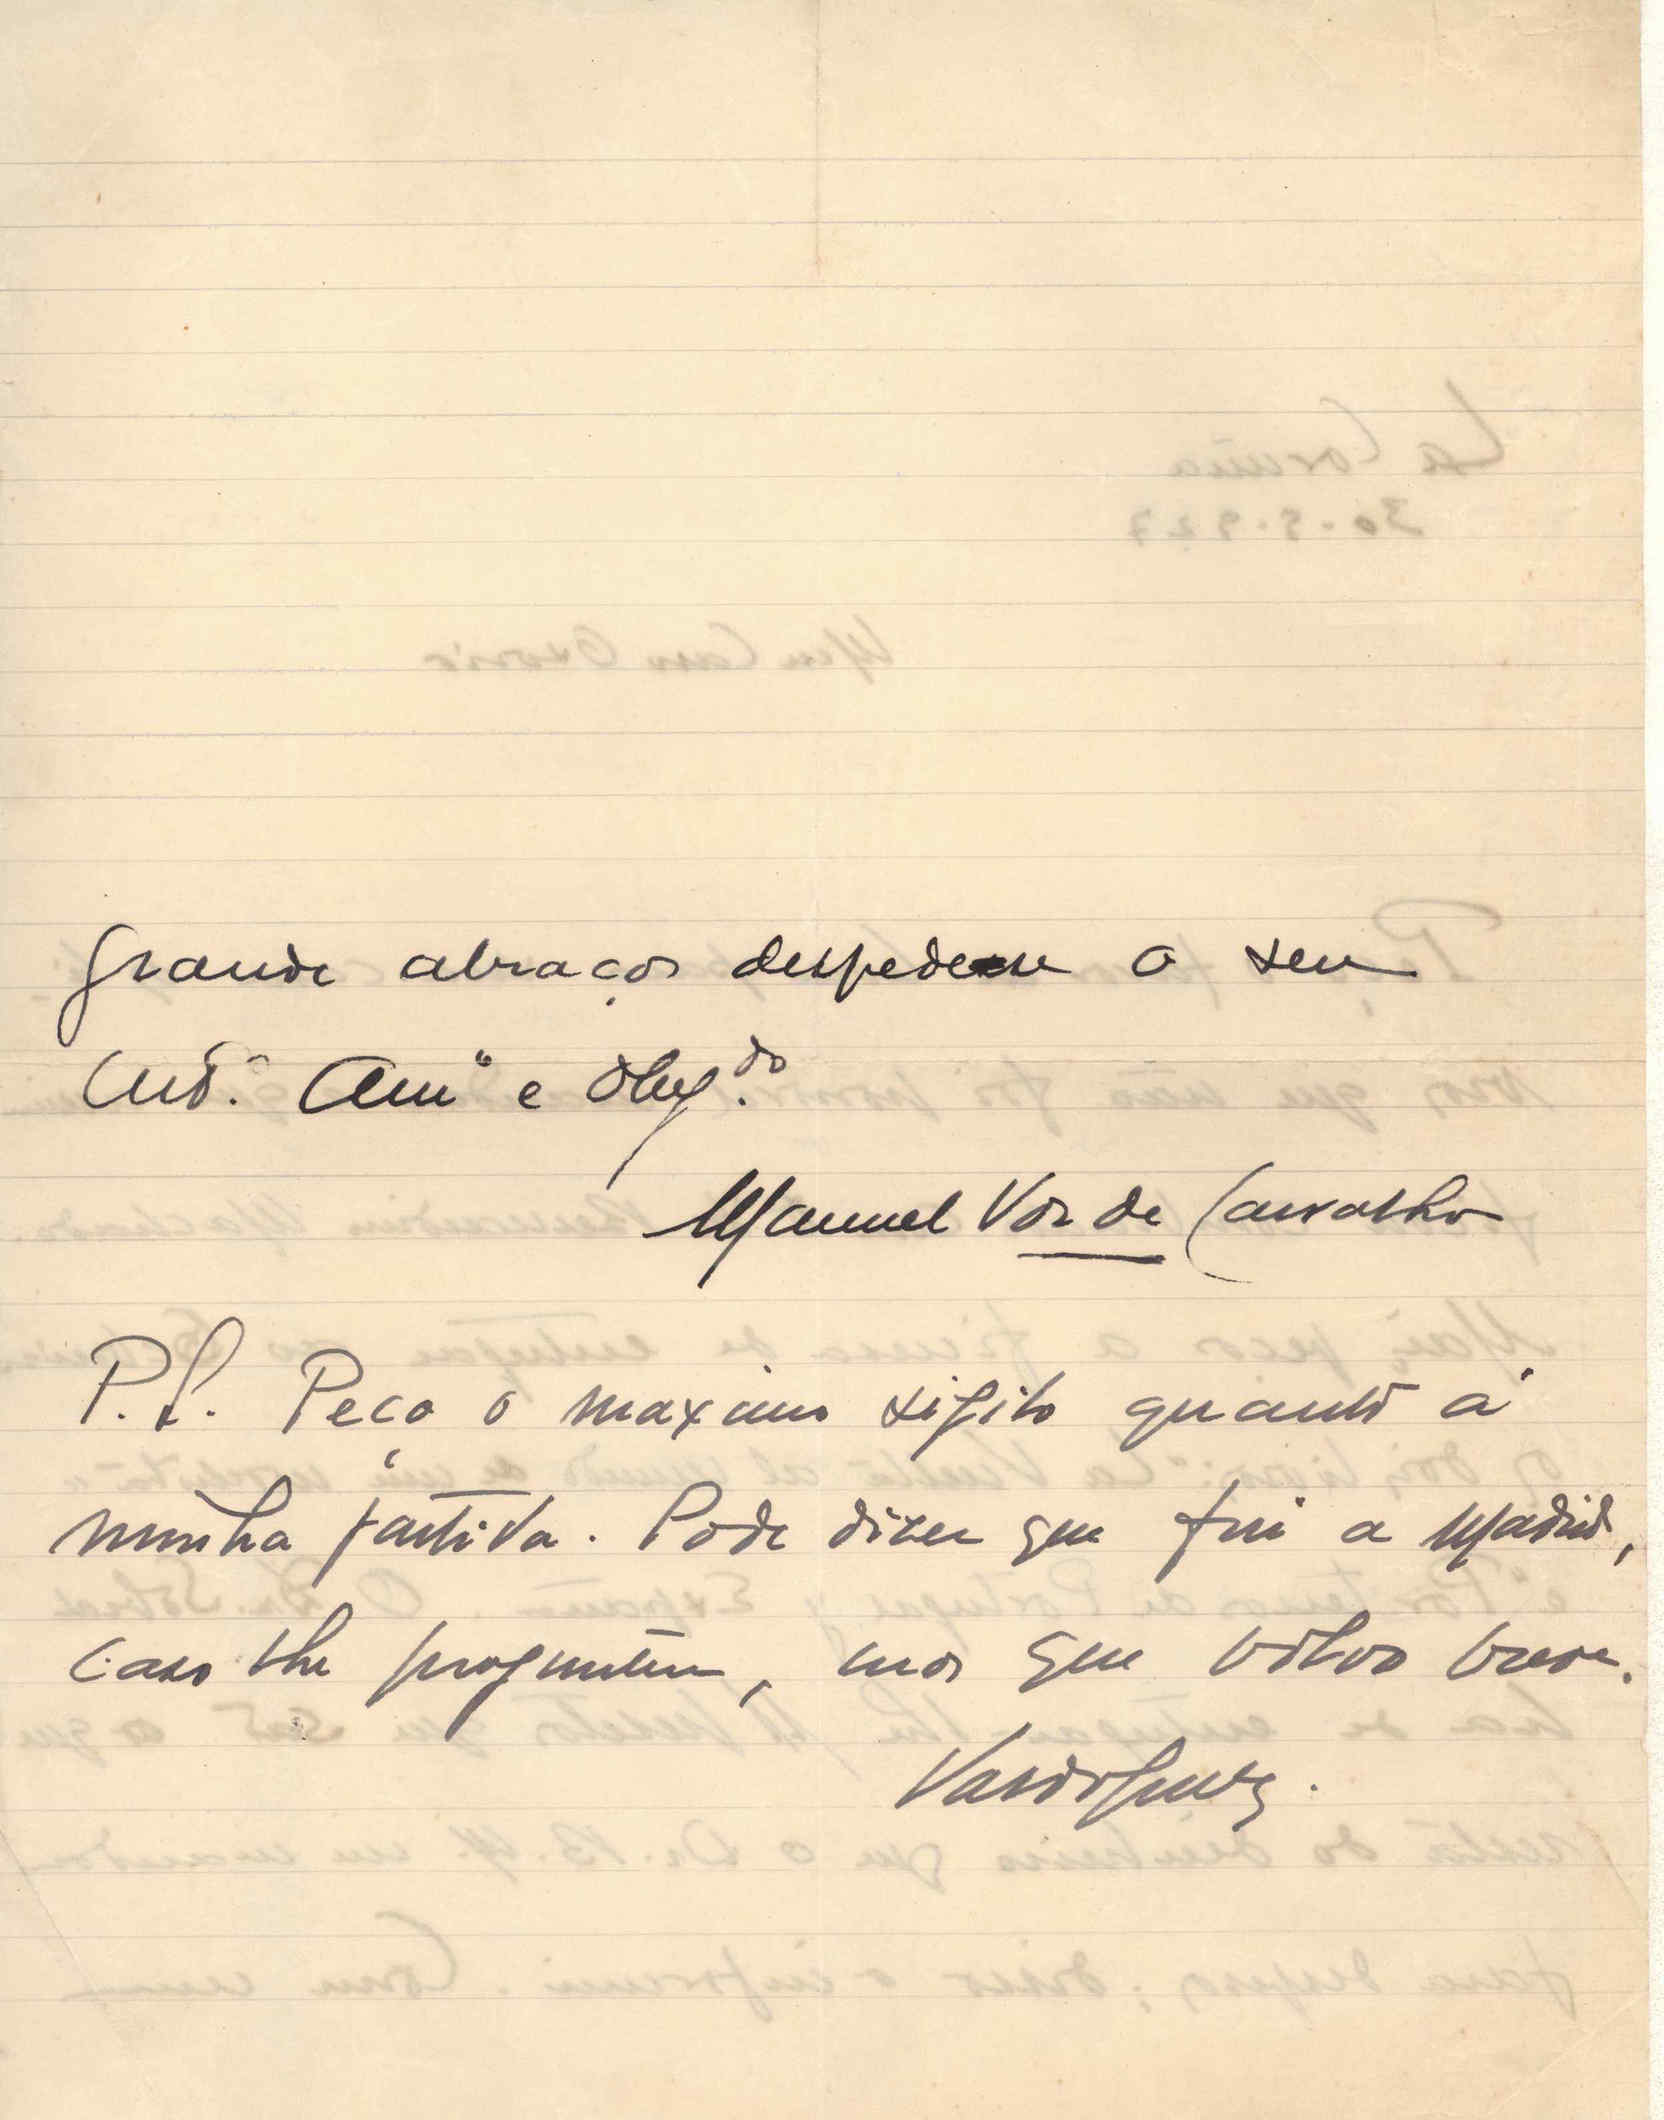 grande abraço despede-se o seu
Cr.do Am.o e Obg.do
Manuel Vaz de Carvalho
P.S. Peço o maximo sigilo quanto á
minha partida. Pode dizer que fui a Madrid,
caso lhe preguntem, mas que volvo breve.